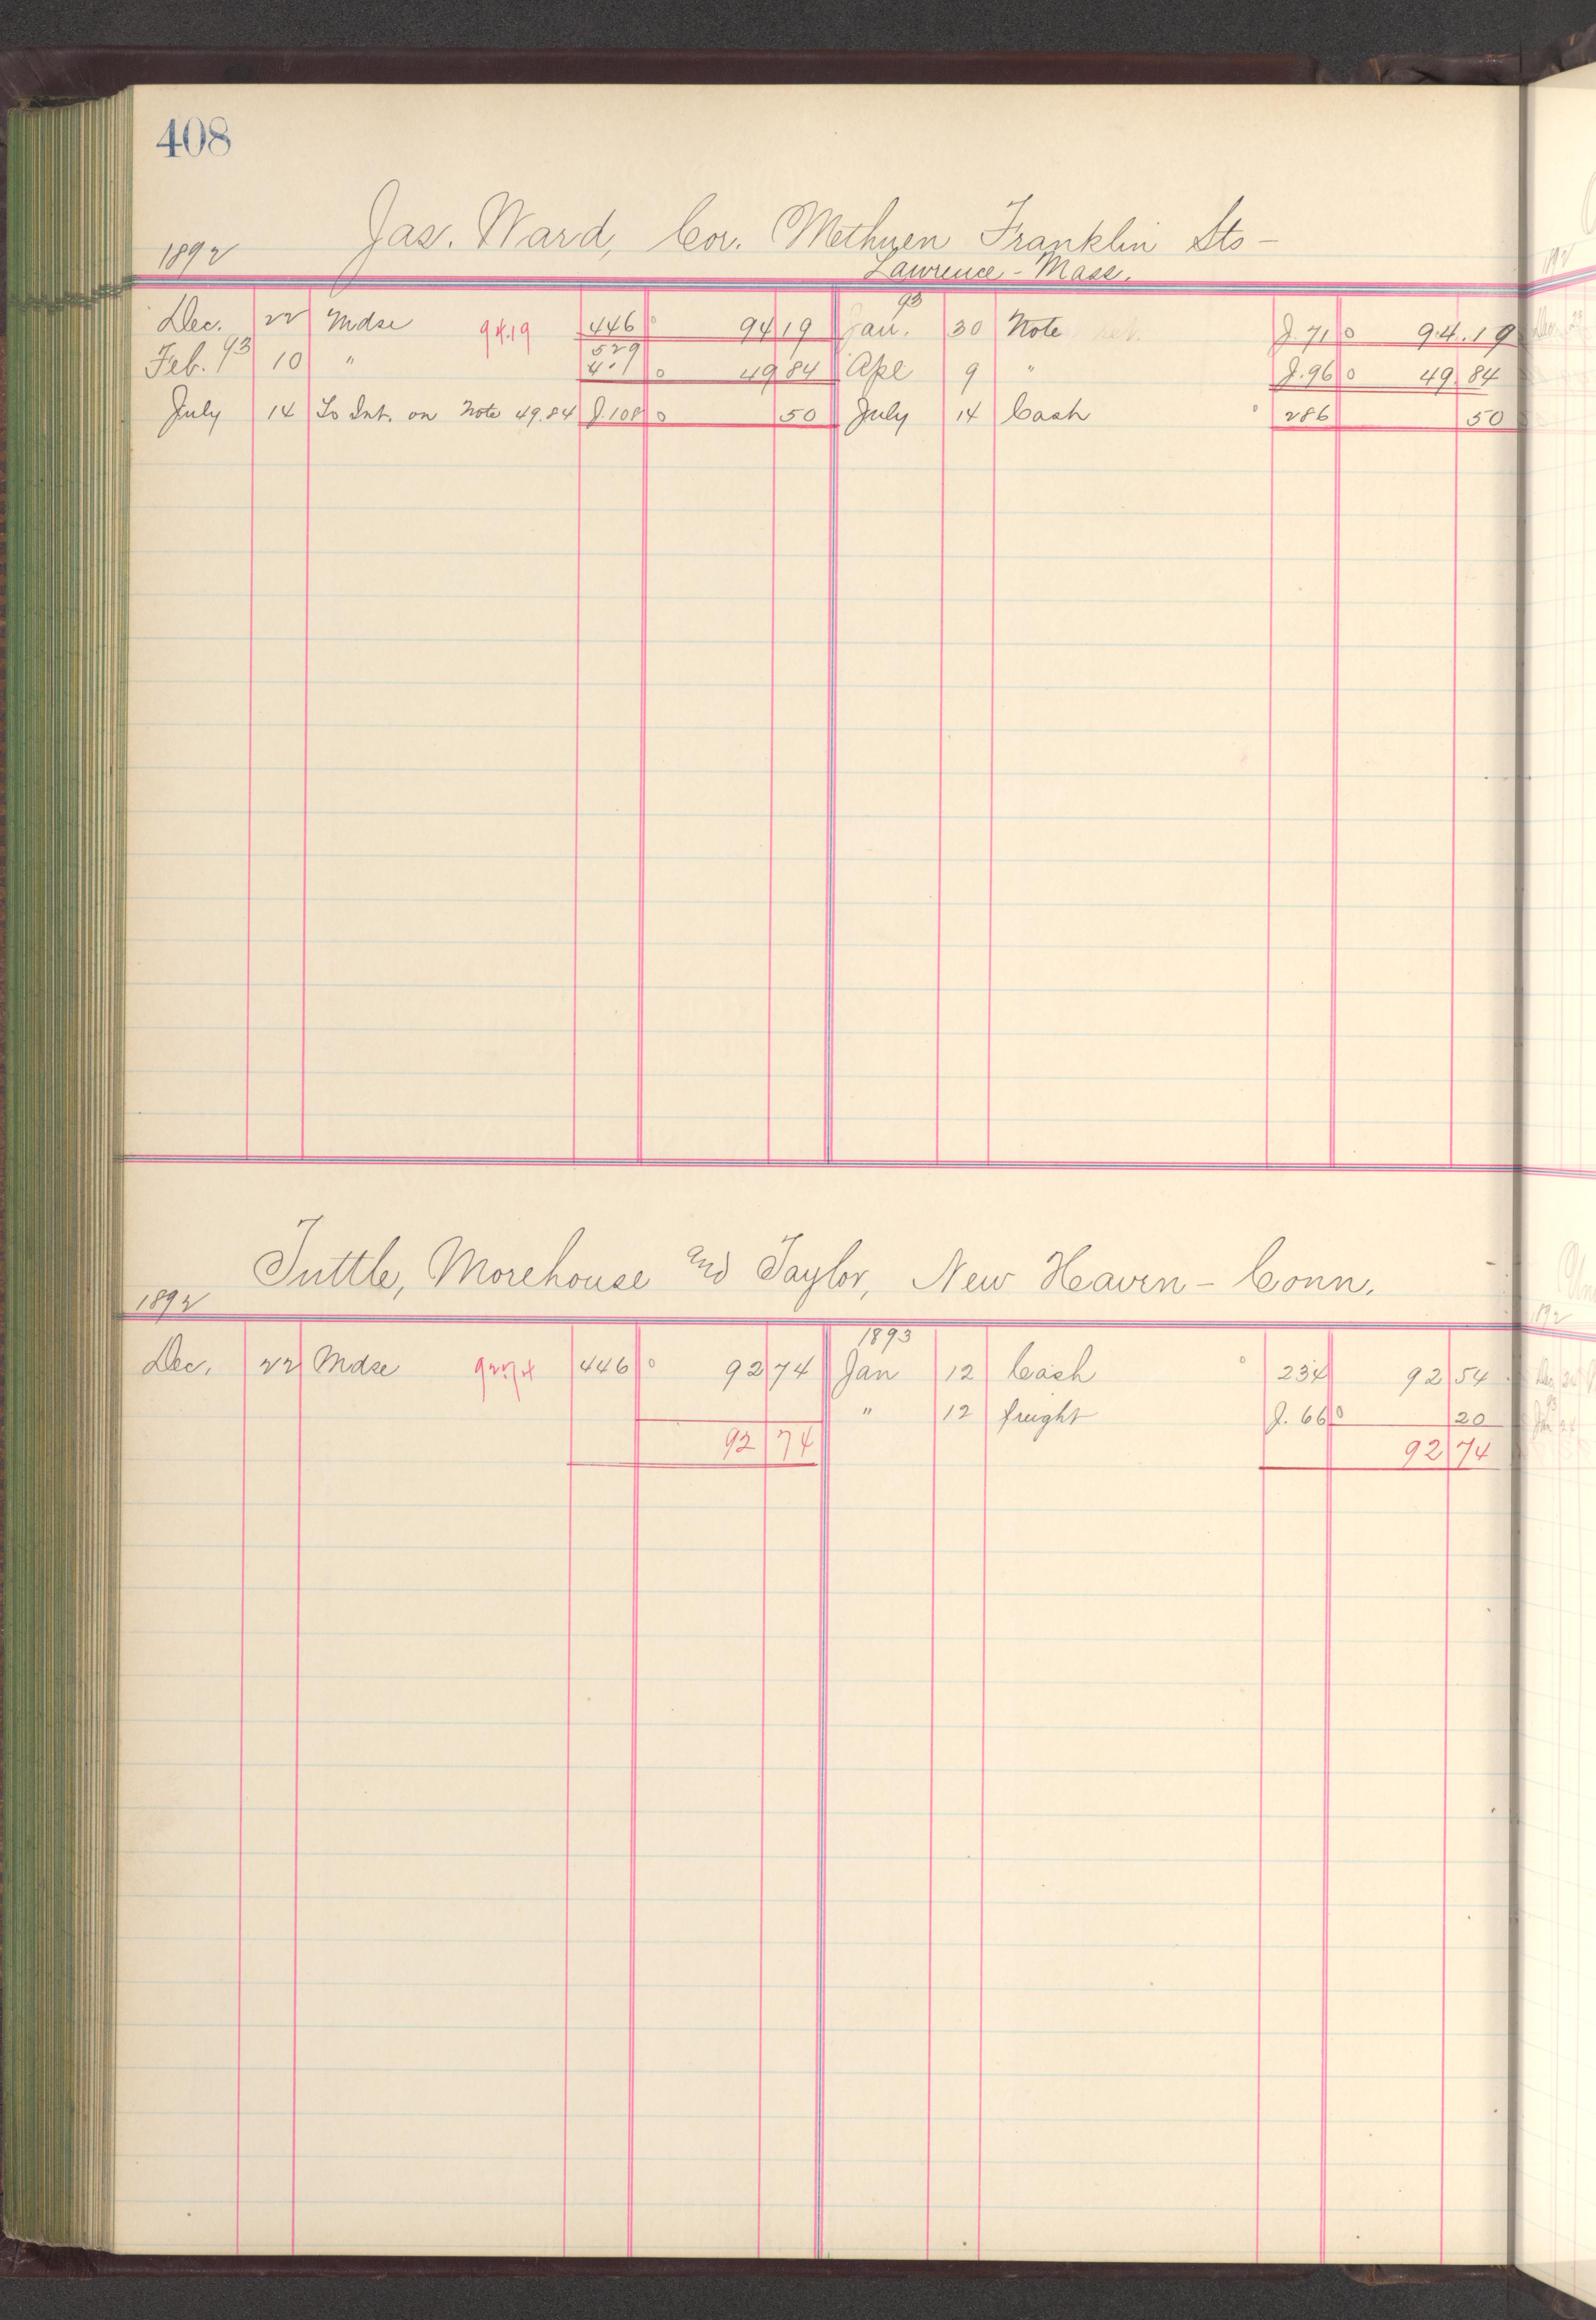 408
Jas. Ward, Cor. Methuen Franklin Sts -
1892
Lawrence - Mass.
Dec. 22 Mdse 94.19 446 0 94 19 Jan. 93 30 Note J. 71 0 94.19
Feb. 93 10 " 529 0 49 84 Apl 9 " J. 96 0 49 84
July 14 To Int. on Note 49.84 J. 108 0 50 July 14 Cash 286 50
Tuttle, Morehouse and Taylor, New Haven - Conn.
1892
1893
Dec. 22 Mdse 92.74 446 0 92 74 Jan 12 Cash 234 92 54
" 12 freight J. 66 0 20
92 74 92 74